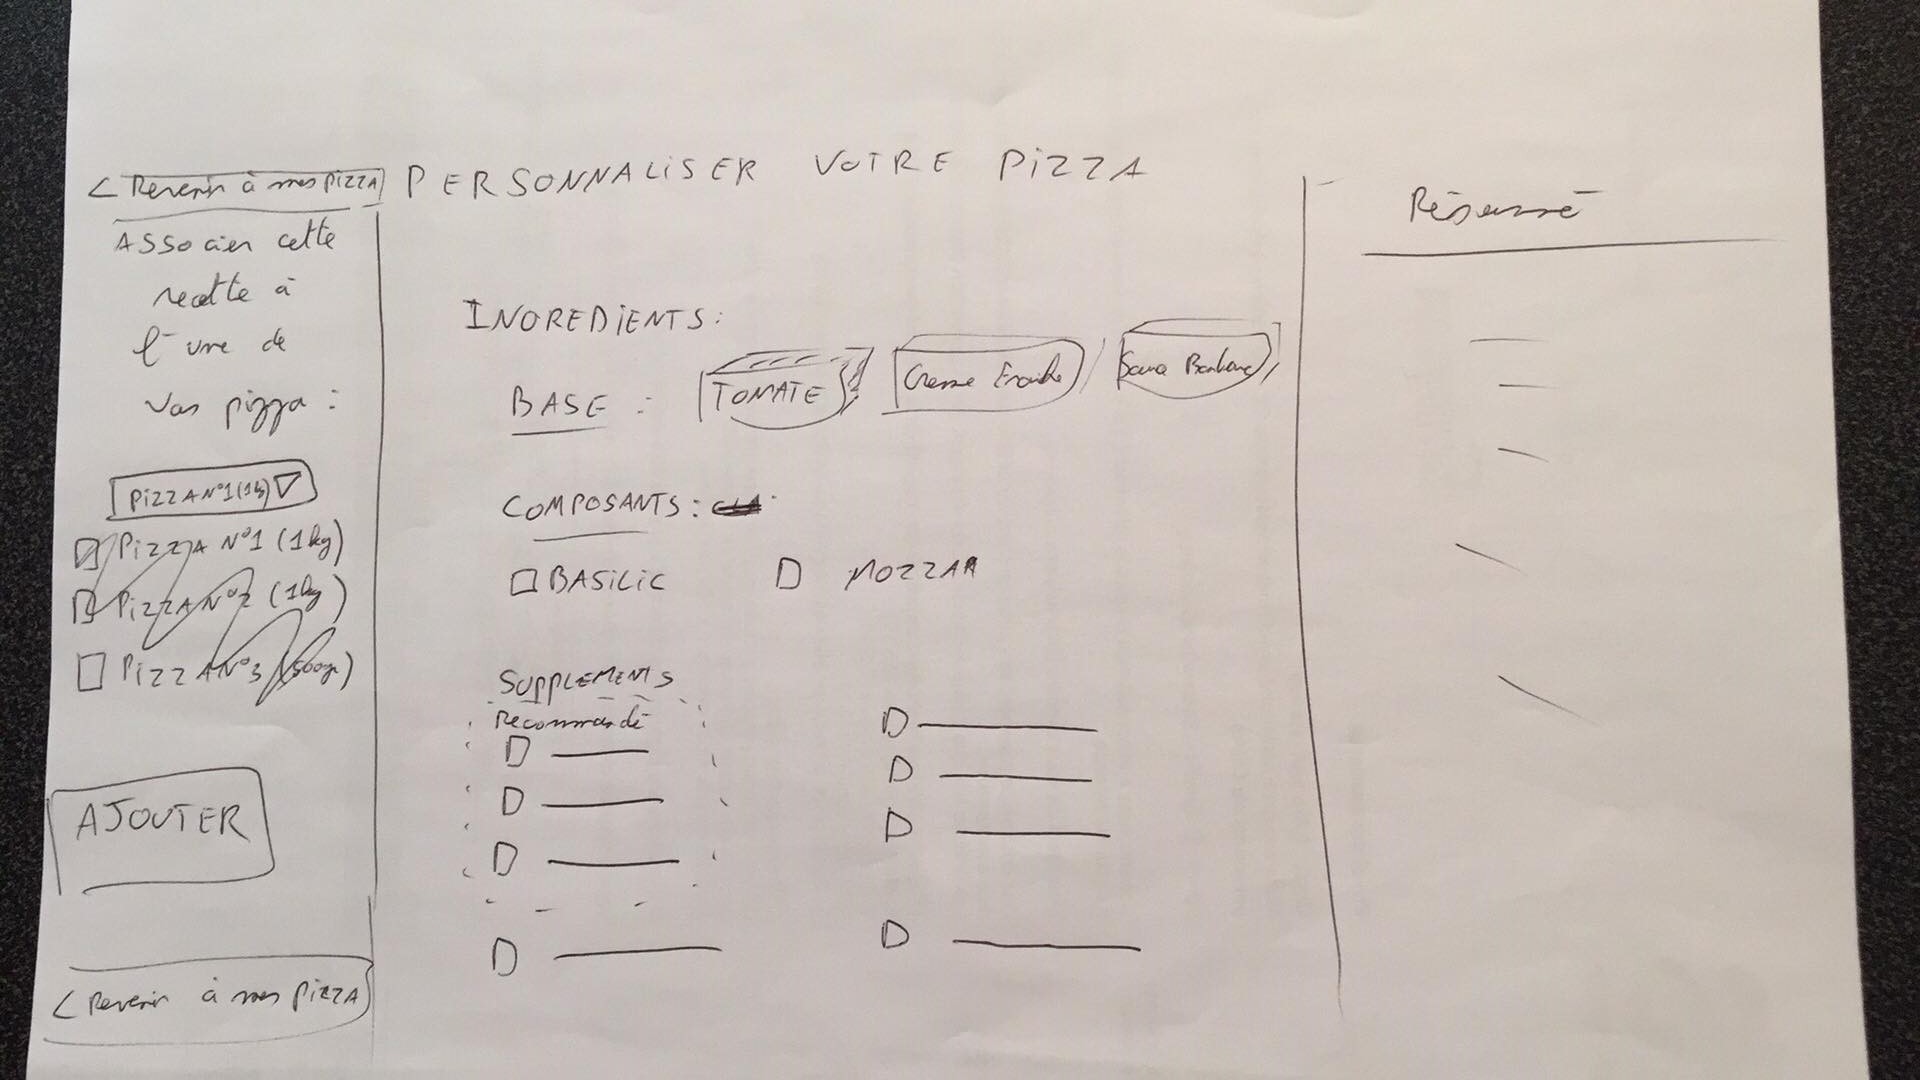 < Revenir à mes pizza
PERSONNALISER VOTRE PIZZA
Résumé
Associer cette
recette à
l'une de
vos pizza :
PIZZA N°1 (1kg)
PIZZA N°1 (1kg)
PIZZA N°2 (1kg)
PIZZA N°3 (500gr)
AJOUTER
< Revenir à mes pizza
INGREDIENTS :
BASE : TOMATE Creme Fraiche / Sauce Barbecue
COMPOSANTS :
BASILIC MOZZA
SUPPLEMENTS
Recommandé